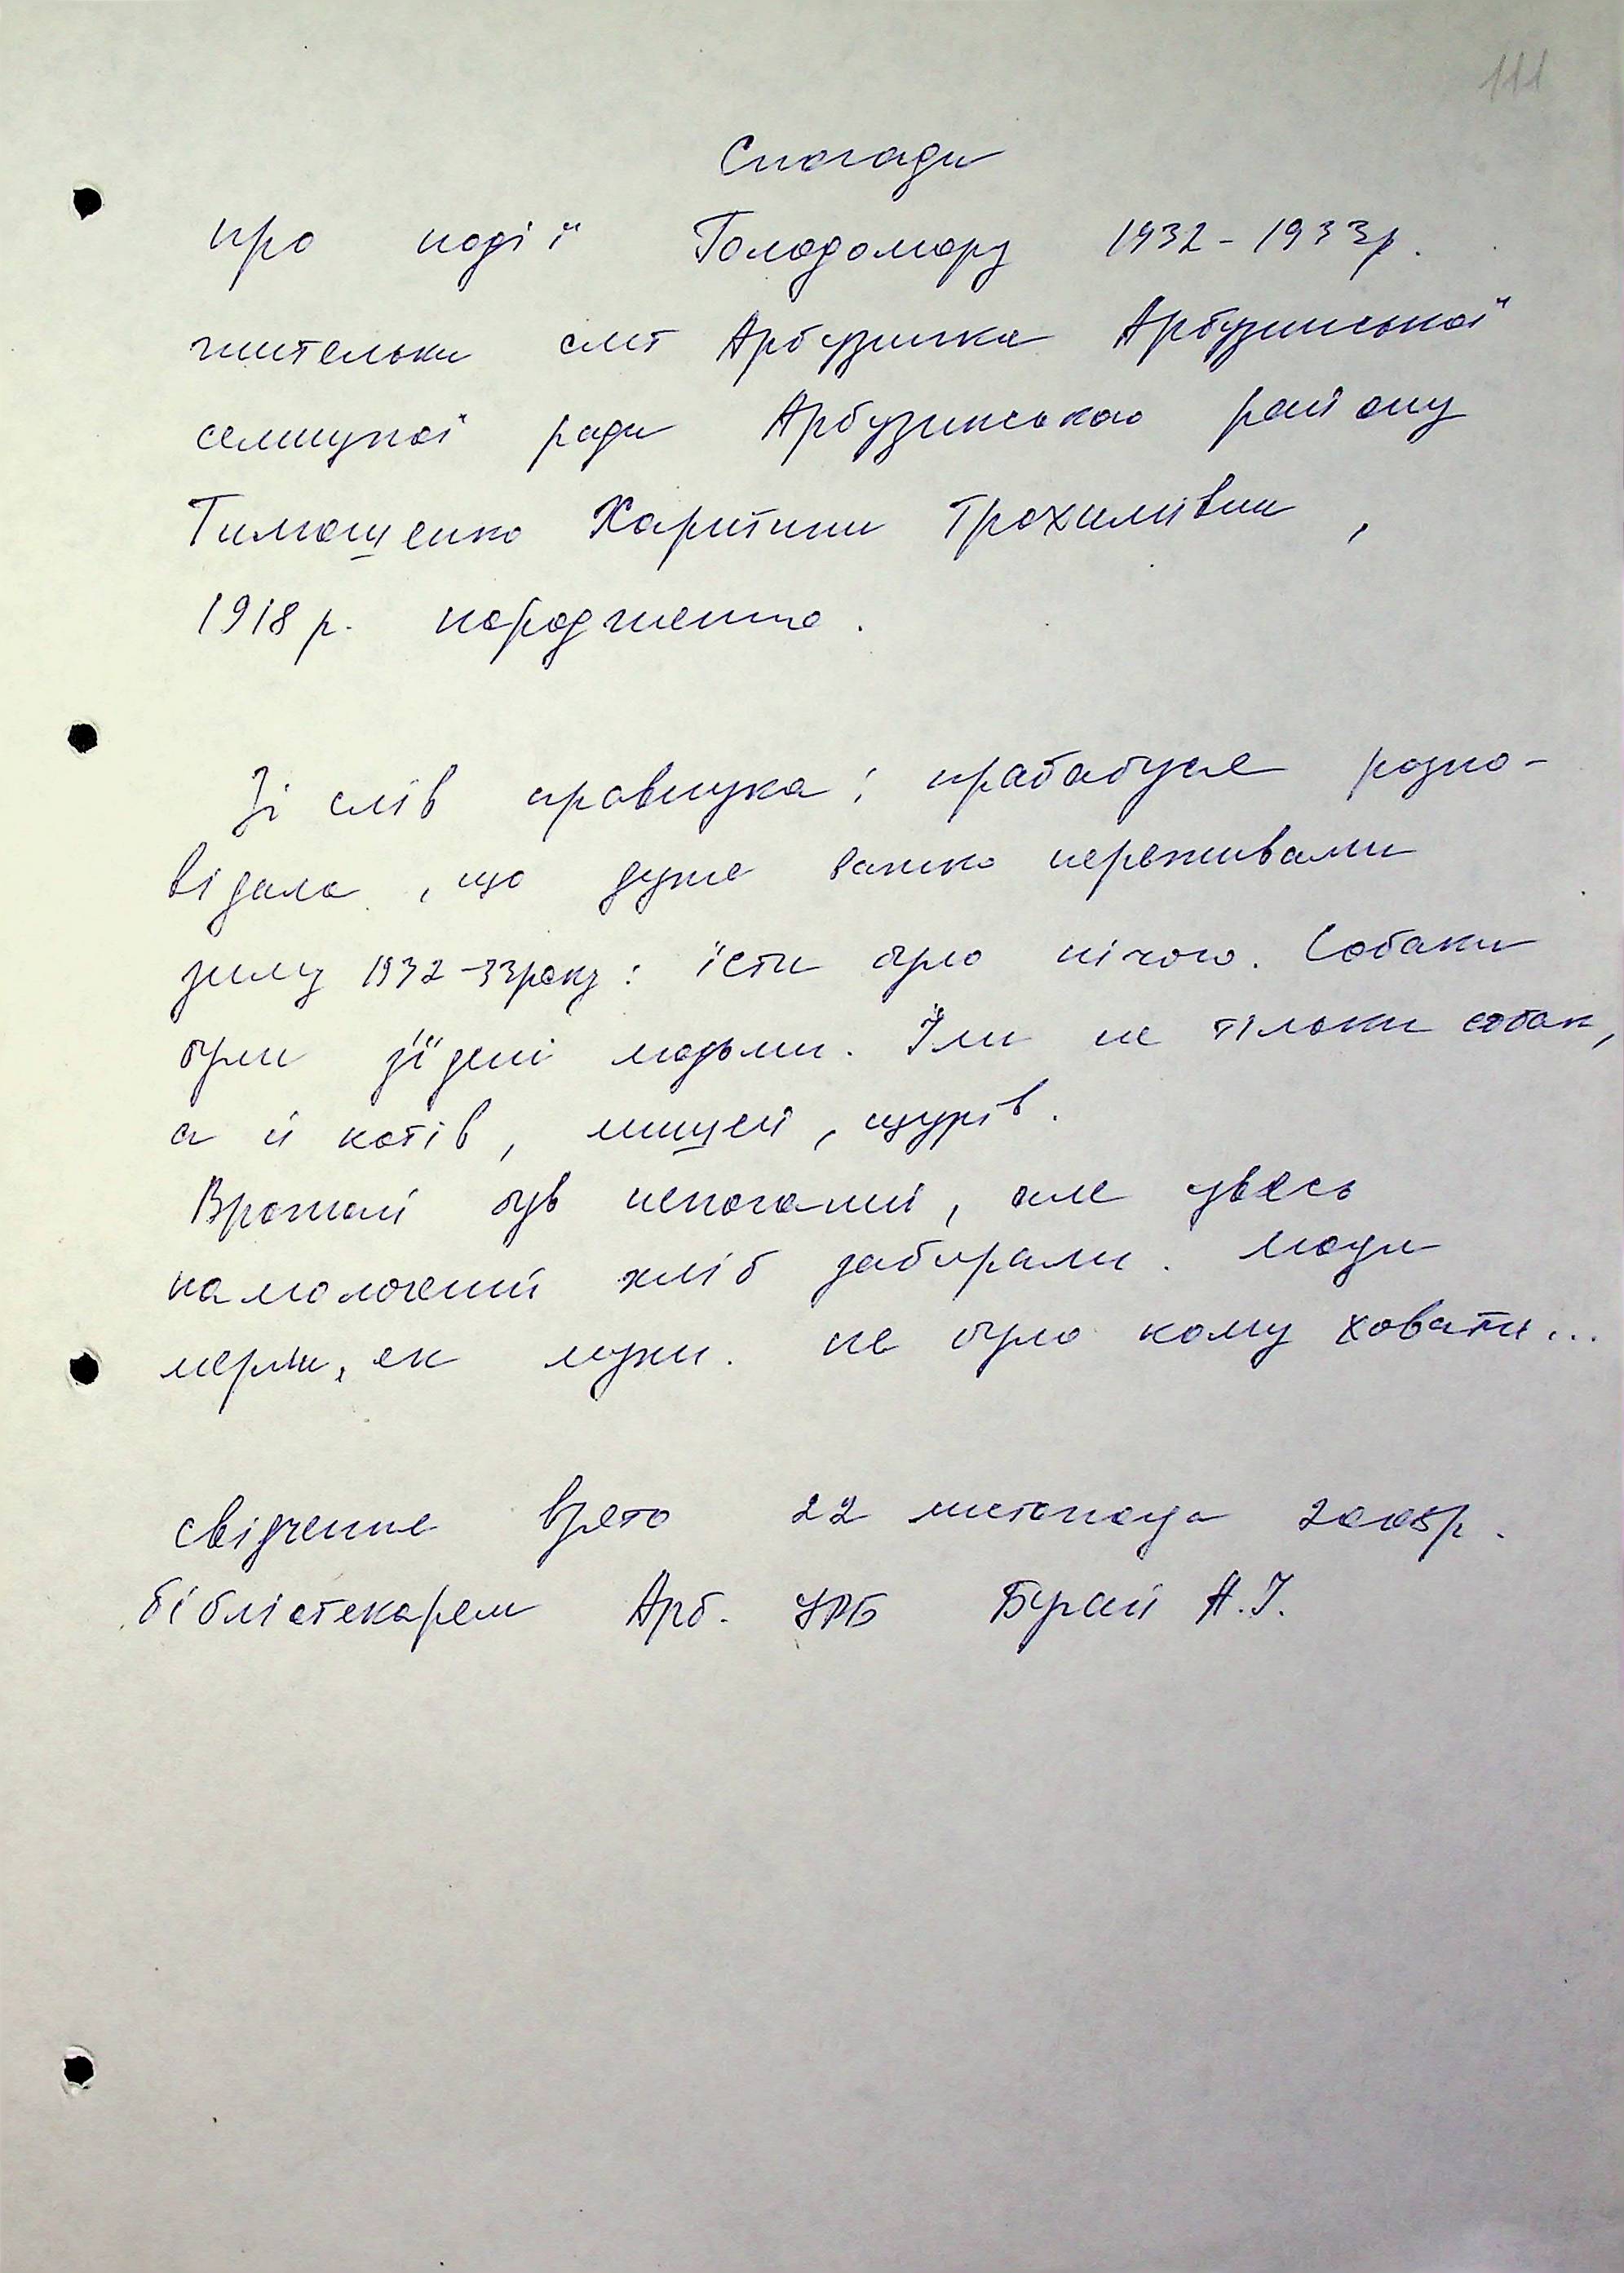 111
Спогади
про події Голодомору 1932-1933р.
жительки смт Арбузинка Арбузинської
селищної ради Арбузинського району
Тимошенко Харитини Трохимівни,
1918 р. народження.
Зі слів правнука: прабабуся розпо-
відала, що дуже важко переживали
зиму 1932-33року: їсти було нічого. Собаки
були з'їдені людьми. Їли не тільки собак,
а й котів, мишей, щурів.
Врожай був непоганий, але увесь
намолочений хліб забирали. Люди
мерли, як мухи. Не було кому ховати...
Свідчення взято 22 листопада 2008р.
бібліотекарем Арб. ЦРБ Бурай А.І.